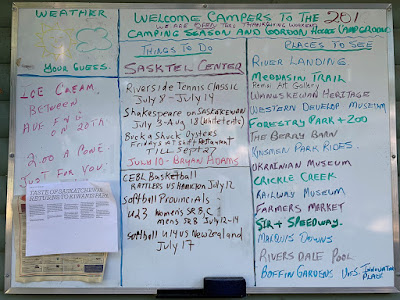 WEATHER
YOUR GUESS.
WELCOME CAMPERS TO THE 201
WE ARE OPEN TILL THANKSGIVING WEEKEND
CAMPING SEASON AND GORDON HOWE CAMPGROUND
ICE CREAM
BETWEEN
AVE F & G
ON 20TH
2.00 A CONE
JUST FOR YOU
TASTE OF SASKATCHEWAN
RETURNS TO KIWANIS PARK
THINGS TO DO
SASKTEL CENTER
Riverside Tennis Classic
July 8 - July 14
Shakespeare on SASKATCHEWAN
July 3 - Aug 18 (White tents)
Buck a Shuck Oysters
Fridays at Shift Restaurant
TILL SEPT 27
JULY 10 - BRYAN ADAMS
CEBL BASKETBALL
RATTLERS VS HAMILTON JULY 12
Softball Provincials
U23 Women's SR B, C
mens SR B July 12-14
Softball U17 vs New Zealand
July 17
PLACES TO SEE
RIVER LANDING
MEEWASIN TRAIL
Remai Art Gallery
WANUSKEWAN HERITAGE
WESTERN DEVELOP MUSEUM
FORESTRY PARK + ZOO
THE BERRY BARN
KINSMEN PARK RIDES
UKRAINIAN MUSEUM
CRICKLE CREEK
RAILWAY MUSEUM
FARMERS MARKET
SPEEDWAY
MARQUIS DOWNS
RIVERSDALE POOL
BOFFIN GARDENS INNOVATION
PLACE